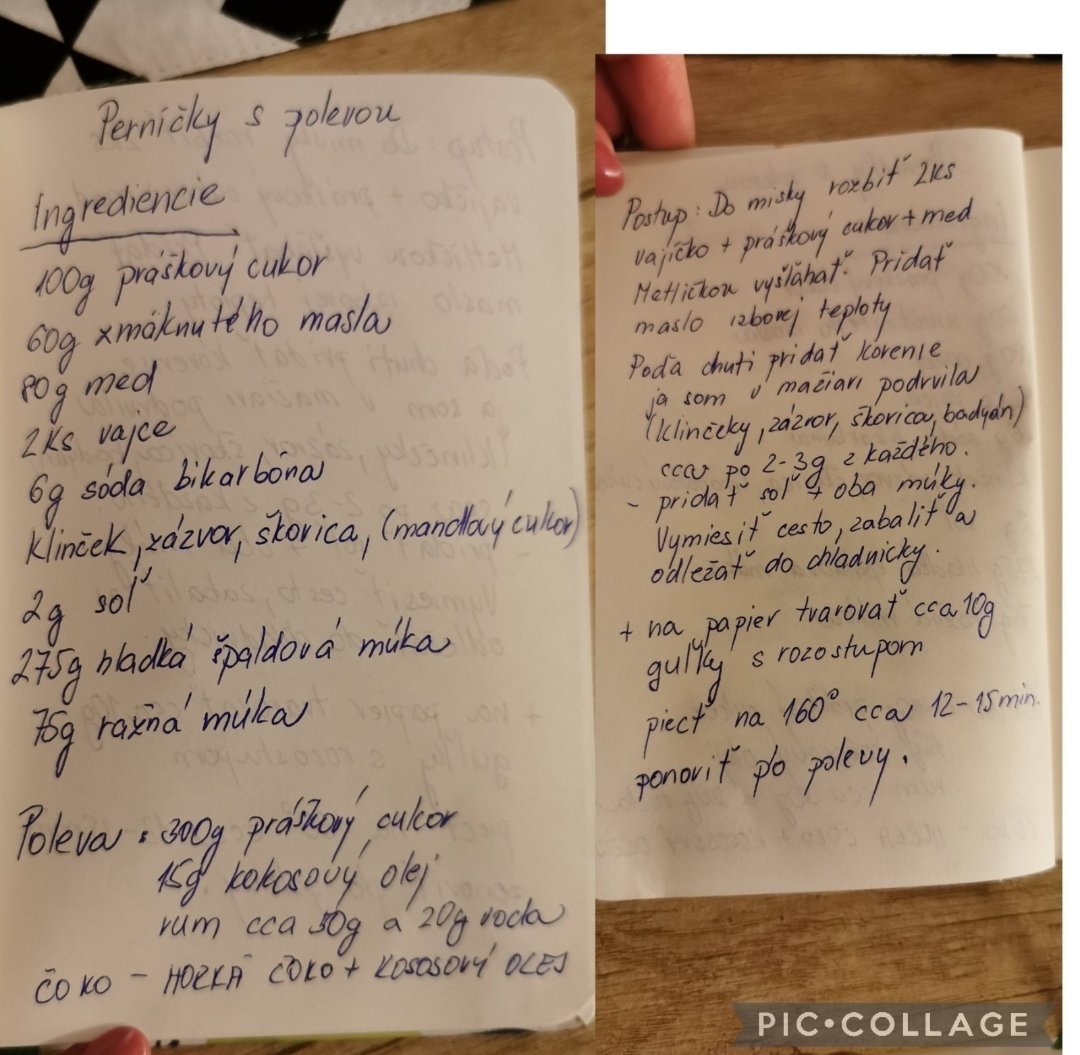 Perníčky s polevou
Ingrediencie
100g práškový cukor
60g zmäknutého masla
80g med
2ks vajce
6g sóda bikarbóna
klinček, zázvor, škorica, (mandlový cukor)
2g soľ
275g hladká špaldová múka
75g ražná múka
Poleva: 300g práškový cukor
15g kokosový olej
rum cca 50g a 20g voda
ČOKO - HORKÁ ČOKO + KOSOSOVÝ OLEJ
Postup: Do misky rozbiť 2ks
vajíčko + práškový cukor + med
Metličkou vyšľahať. Pridať
maslo izbovej teploty
Poďa chuti pridať korenie
ja som v mažiari podrvila
(klinčeky, zázvor, škorica, badyán)
cca po 2-3g z každého.
- pridať soľ + oba múky.
Vymiesiť cesto, zabaliť a
odležať do chladnicky.
+ na papier tvarovať cca 10g
guľky s rozostupom
piecť na 160° cca 12-15min.
ponoriť po polevy.
PIC•COLLAGE